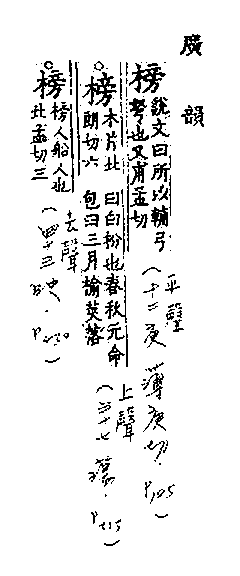 廣韻
榜
說文曰所以輔弓
弩也又甫孟切
（平聲
十二庚 薄庚切．
○榜
木片北
朗切六
曰白枌也春秋元命
包曰三月榆莢落
（上聲
三十七蕩．
○榜
榜人船人也
北孟切三
（去聲
四十三映．